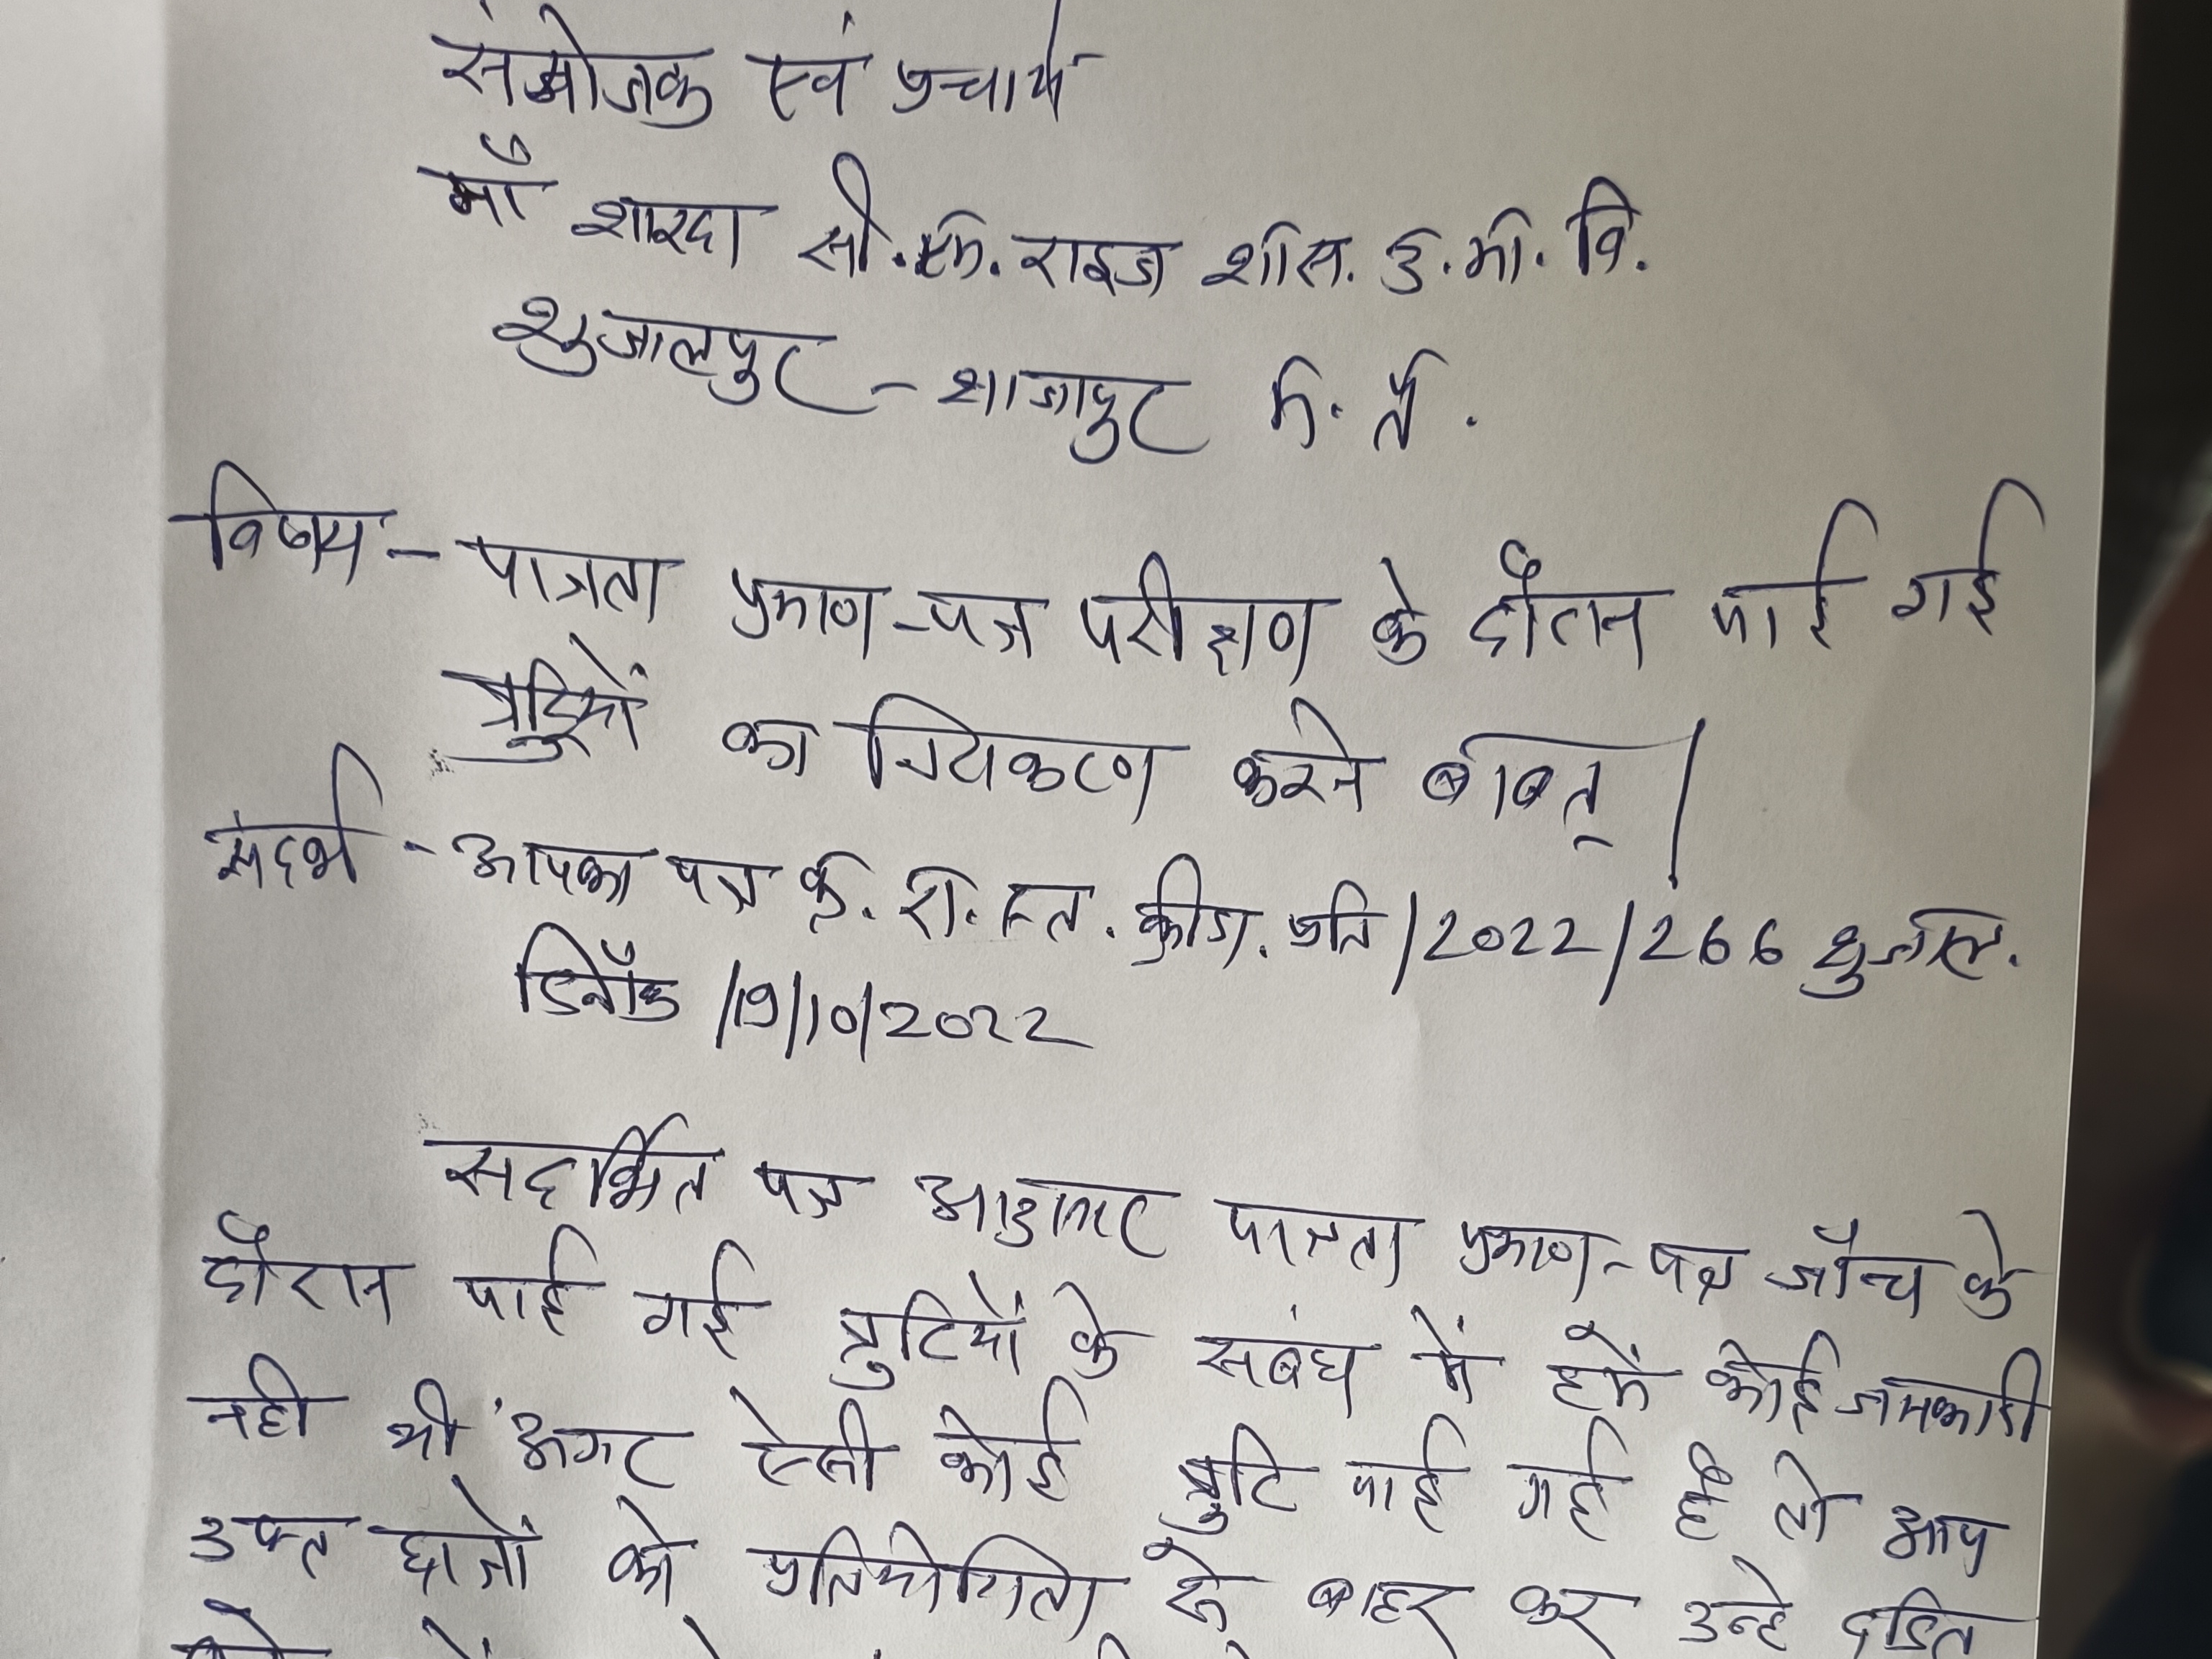 संयोजक एवं प्रचार्य
माँ शारदा सी.एम.राइज शास. उ.मा.वि.
शुजालपुर - शाजापुर म.प्र.
विषय - पात्रता प्रमाण-पत्र परीक्षण के दौरान पाई गई
त्रुटियों का निराकरण करने बाबत् |
संदर्भ - आपका पत्र क्र. रा. स्त. क्रीडा. प्रति/2022/266 शुजाल.
दिनाँक /19/10/2022
सदर्भित पत्र अनुसार पात्रता प्रमाण-पत्र जाँच के
दौरान पाई गई त्रुटियों के सबंध में हमें कोई जानकारी
नही थी अगर ऐसी कोई त्रुटि पाई गई है तो आप
उक्त छात्रों को प्रतियोगिता से बाहर कर उन्हे दडित